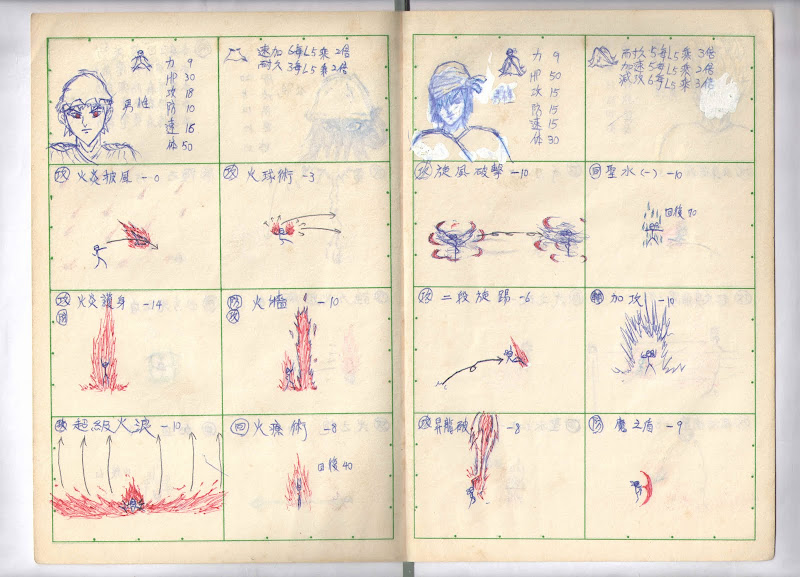 力 9
HP 30
攻 18
防 10
速 16
体 50
男性
速加 6每L5乘2倍
耐久 3每L5乘2倍
攻 火炎披風 -0
攻 火球術 -3
攻 火炎護身 -14
防
防 火牆 -10
攻
攻 超級火波 -10
回 火療術 -8
回後 40
力 9
HP 50
攻 15
防 15
速 15
体 30
男性
耐久 5每L5乘3倍
加速 5每L5乘2倍
減攻 6每L5乘3倍
攻 旋風破擊 -10
回 聖水(一) -10
回後 70
攻 二段旋踢 -6
輔 加攻 -10
攻 昇龍破 -8
防 魔之盾 -9